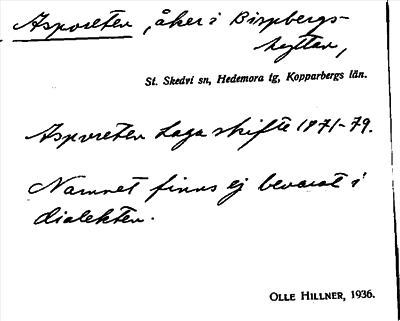 Asporeten, åker i Bispbergs-
hyttan,
St. Skedvi sn, Hedemora tg, Kopparbergs län.
Asporeten Laga skifte 1871-79.
Namnet finns ej bevarat i
dialekten.
OLLE HILLNER, 1936.